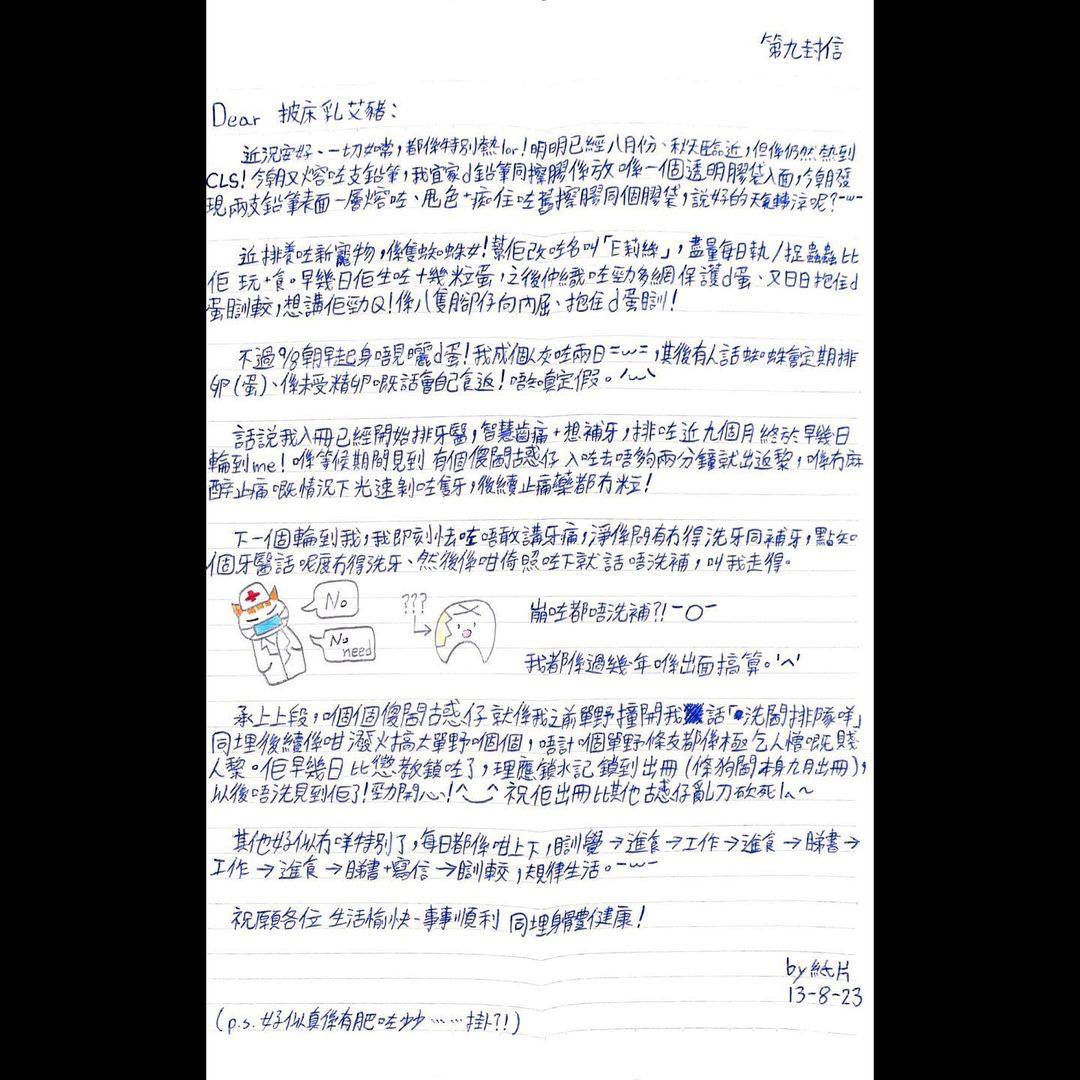 第九封信
Dear 披床乳艾豬：
近況安好、一切如常，都係特別熱lor！明明已經八月份、秋天臨近，但係仍然熱到
CLS！今朝又熔咗支鉛筆，我宜家d鉛筆同擦膠係放喺一個透明膠袋入面，今朝發
現兩支鉛筆表面一層熔咗、甩色+痴住咗舊擦膠同個膠袋，說好的天氣轉涼呢？-w-
近排養咗新寵物，係隻蜘蛛女！幫佢改咗名叫「E莉絲」，盡量每日執/捉蟲蟲比
佢玩+食。早幾日佢生咗十幾粒蛋，之後仲織咗勁多網保護d蛋、又日日抱住d
蛋瞓較，想講佢勁Q！係八隻腳仔向內屈、抱住d蛋瞓！
不過9/8朝早起身唔見曬d蛋！我成個人灰咗兩日=w=，其後有人話蜘蛛會定期排
卵(蛋)、係未受精卵嘅話會自己食返！唔知真定假。'w'
話說我入冊已經開始排牙醫，智慧齒痛+想補牙，排咗近九個月終於早幾日
輪到me！喺等候期間見到有個傻閪古惑仔入咗去唔夠兩分鐘就出返黎，喺冇麻
醉止痛嘅情況下光速剝咗隻牙，後續止痛藥都冇粒！
下一個輪到我，我即刻怯咗唔敢講牙痛，淨係問有冇得洗牙同補牙，點知
個牙醫話呢度冇得洗牙、然後係咁倚照咗下就話唔洗補，叫我走得。
No
No need
???
崩咗都唔洗補？！-O-
我都係過幾年喺出面搞算。'^'
承上上段，嗰個傻閪古惑仔就係我之前單野撞開我話「洗閪排隊咩」
同埋後續係咁潑火搞大單野嗰個，唔計嗰單野條友都係極乞人憎嘅賤
人黎。佢早幾日比懲教鎖咗了，理應鎖水記鎖到出冊(條狗閪本身九月出冊)，
以後唔洗見到佢了！勁開心！^‿^ 祝佢出冊比其他古惑仔亂刀砍死la~
其他好似冇咩特別了，每日都係咁上下，瞓覺→進食→工作→進食→睇書→
工作→進食→睇書+寫信→瞓較，規律生活。-w-
祝願各位生活愉快、事事順利同埋身體健康！
by紙片
13-8-23
(p.s.好似真係有肥咗少少……掛？！)